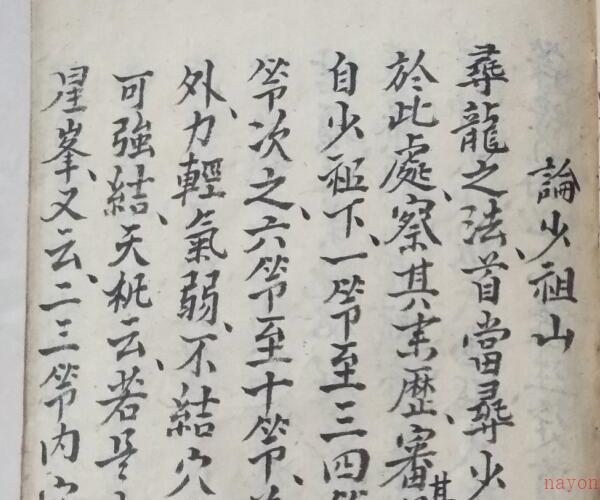 論少祖山
尋龍之法、首當尋少
於此處、察其来歷、審其
自少祖下、一節至三四節
節次之、六節至十節、
外、力輕氣弱、不結穴
可強結、天机云、若是
星峯、又云、二三節内
nayon